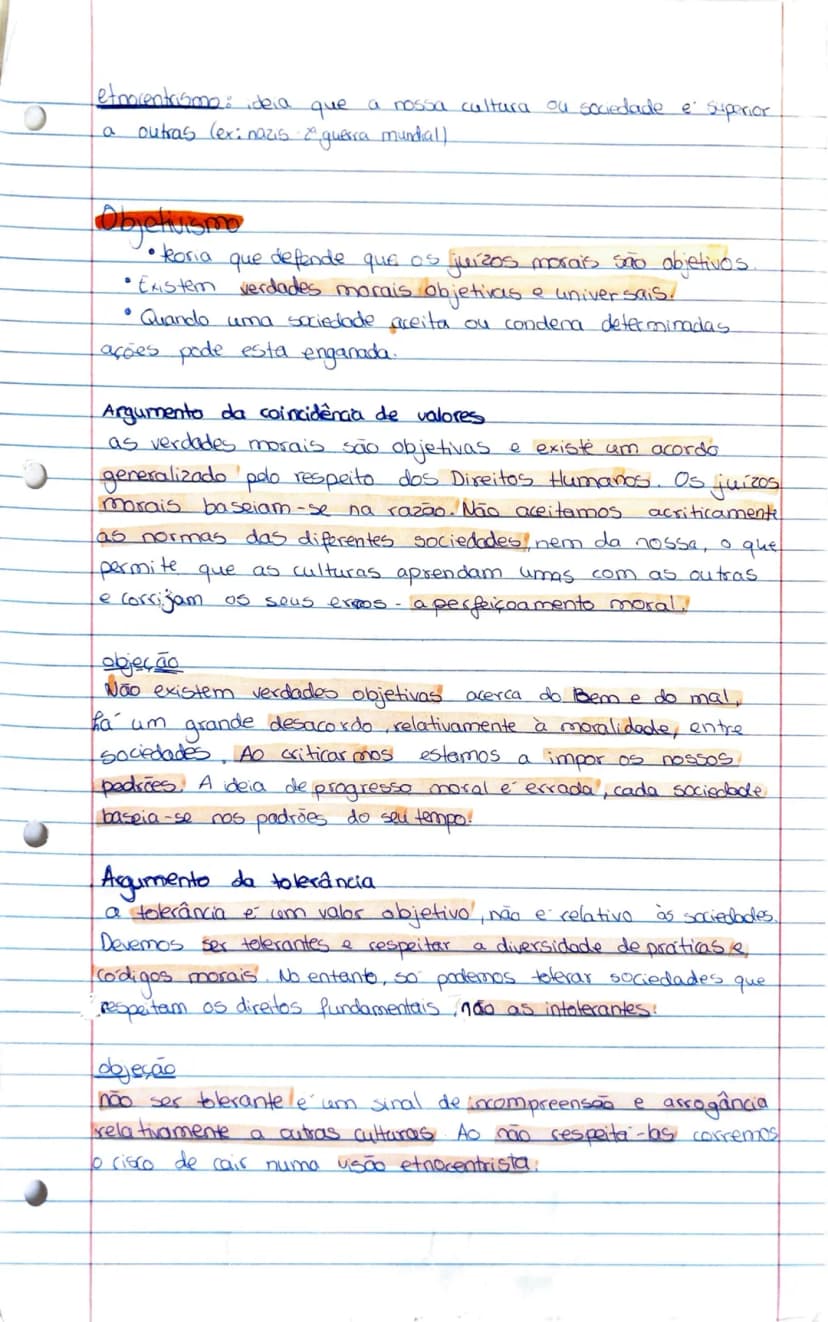 etnocentrismo: ideia que a nossa cultura ou sociedade é superior
a outras (ex: nazis 2ª guerra mundial)
Objetivismo
• teoria que defende que os juízos morais são objetivos.
• Existem verdades morais objetivas e universais.
• Quando uma sociedade aceita ou condena determinadas
ações pode esta enganada.
Argumento da coincidência de valores
as verdades morais são objetivas e existe um acordo
generalizado pelo respeito dos Direitos Humanos. Os juízos
morais baseiam-se na razão. Não aceitamos acriticamente
as normas das diferentes sociedades, nem da nossa, o que
permite que as culturas aprendam umas com as outras
e corrijam os seus erros - aperfeiçoamento moral.
objeção
Não existem verdades objetivas acerca do Bem e do mal,
há um grande desacordo, relativamente à moralidade, entre
sociedades. Ao criticarmos estamos a impor os nossos
padrões. A ideia de progresso moral é errada, cada sociedade
baseia-se nos padrões do seu tempo.
Argumento da tolerância
a tolerância é um valor objetivo, não é relativo às sociedades.
Devemos ser tolerantes e respeitar a diversidade de práticas e
códigos morais. No entanto, só podemos tolerar sociedades que
respeitam os direitos fundamentais, não as intolerantes.
objeção
não ser tolerante é um sinal de incompreensão e arrogância
relativamente a outras culturas. Ao não respeitá-las corremos
o risco de cair numa visão etnocentrista.